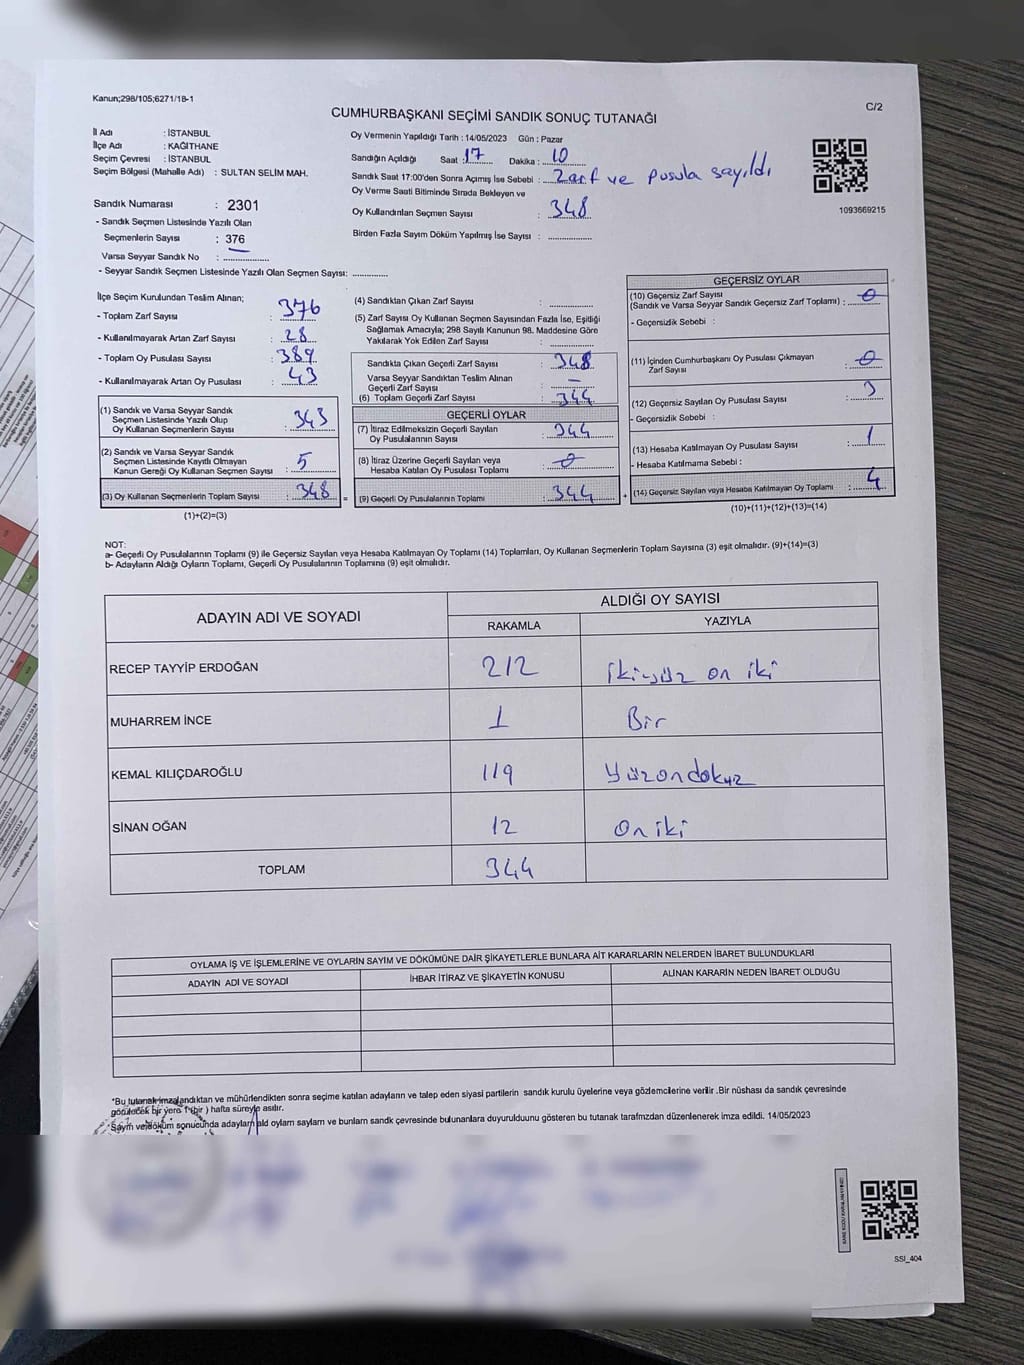 Kanun;298/105;6271/1B-1
C/2
CUMHURBAŞKANI SEÇİMİ SANDIK SONUÇ TUTANAĞI
İl Adı : İSTANBUL
İlçe Adı : KAĞITHANE
Seçim Çevresi : İSTANBUL
Seçim Bölgesi (Mahalle Adı) : SULTAN SELİM MAH.
Sandık Numarası : 2301
- Sandık Seçmen Listesinde Yazılı Olan
Seçmenlerin Sayısı : 376
Varsa Seyyar Sandık No : ..............
- Seyyar Sandık Seçmen Listesinde Yazılı Olan Seçmen Sayısı: ............
Oy Vermenin Yapıldığı Tarih : 14/05/2023 Gün : Pazar
Sandığın Açıldığı Saat : 17 Dakika : 10
Sandık Saat 17:00'den Sonra Açımış İse Sebebi : Zarf ve pusula sayıldı
Oy Verme Saati Bitiminde Sırada Bekleyen ve
Oy Kullandırılan Seçmen Sayısı : 348
Birden Fazla Sayım Döküm Yapılmış İse Sayısı : ..............
1093669215
İlçe Seçim Kurulundan Teslim Alınan;
- Toplam Zarf Sayısı : 376
- Kullanılmayarak Artan Zarf Sayısı : 28
- Toplam Oy Pusulası Sayısı : 389
- Kullanılmayarak Artan Oy Pusulası : 43
(1) Sandık ve Varsa Seyyar Sandık
Seçmen Listesinde Yazılı Olup
Oy Kullanan Seçmenlerin Sayısı : 343
(2) Sandık ve Varsa Seyyar Sandık
Seçmen Listesinde Kayıtlı Olmayan
Kanun Gereği Oy Kullanan Seçmen Sayısı : 5
(3) Oy Kullanan Seçmenlerin Toplam Sayısı : 348 =
(1)+(2)=(3)
(4) Sandıktan Çıkan Zarf Sayısı : ..............
(5) Zarf Sayısı Oy Kullanan Seçmen Sayısından Fazla İse, Eşitliği
Sağlamak Amacıyla; 298 Sayılı Kanunun 98. Maddesine Göre
Yakılarak Yok Edilen Zarf Sayısı : ..............
Sandıkta Çıkan Geçerli Zarf Sayısı : 348
Varsa Seyyar Sandıktan Teslim Alınan
Geçerli Zarf Sayısı : –
(6) Toplam Geçerli Zarf Sayısı : 344
GEÇERLİ OYLAR
(7) İtiraz Edilmeksizin Geçerli Sayılan
Oy Pusulalarının Sayısı : 344
(8) İtiraz Üzerine Geçerli Sayılan veya
Hesaba Katılan Oy Pusulası Toplamı : 0
(9) Geçerli Oy Pusulalarının Toplamı : 344 +
GEÇERSİZ OYLAR
(10) Geçersiz Zarf Sayısı
(Sandık ve Varsa Seyyar Sandık Geçersiz Zarf Toplamı) : 0
- Geçersizlik Sebebi :
(11) İçinden Cumhurbaşkanı Oy Pusulası Çıkmayan
Zarf Sayısı : 0
(12) Geçersiz Sayılan Oy Pusulası Sayısı : 3
- Geçersizlik Sebebi :
(13) Hesaba Katılmayan Oy Pusulası Sayısı : 1
- Hesaba Katılmama Sebebi :
(14) Geçersiz Sayılan veya Hesaba Katılmayan Oy Toplamı : 4
(10)+(11)+(12)+(13)=(14)
NOT:
a- Geçerli Oy Pusulalarının Toplamı (9) ile Geçersiz Sayılan veya Hesaba Katılmayan Oy Toplamı (14) Toplamları, Oy Kullanan Seçmenlerin Toplam Sayısına (3) eşit olmalıdır. (9)+(14)=(3)
b- Adayların Aldığı Oyların Toplamı, Geçerli Oy Pusulalarının Toplamına (9) eşit olmalıdır.
ADAYIN ADI VE SOYADI
ALDIĞI OY SAYISI
RAKAMLA YAZIYLA
RECEP TAYYİP ERDOĞAN 212 İkiyüz on iki
MUHARREM İNCE 1 Bir
KEMAL KILIÇDAROĞLU 119 Yüzondokuz
SİNAN OĞAN 12 On iki
TOPLAM 344
OYLAMA İŞ VE İŞLEMLERİNE VE OYLARIN SAYIM VE DÖKÜMÜNE DAİR ŞİKAYETLERLE BUNLARA AİT KARARLARIN NELERDEN İBARET BULUNDUKLARI
ADAYIN ADI VE SOYADI İHBAR İTİRAZ VE ŞİKAYETİN KONUSU ALINAN KARARIN NEDEN İBARET OLDUĞU
*Bu tutanak imzalandıktan ve mühürlendikten sonra seçime katılan adayların ve talep eden siyasi partilerin sandık kurulu üyelerine veya gözlemcilerine verilir .Bir nüshası da sandık çevresinde
görülecek bir yere 1 (bir ) hafta süreyle asılır.
Sayım ve döküm sonucunda adayların aldı oyların sayların ve bunların sandık çevresinde bulunanlara duyurulduunu gösteren bu tutanak tarafımzdan düzenlenerek imza edildi. 14/05/2023
SSİ_404